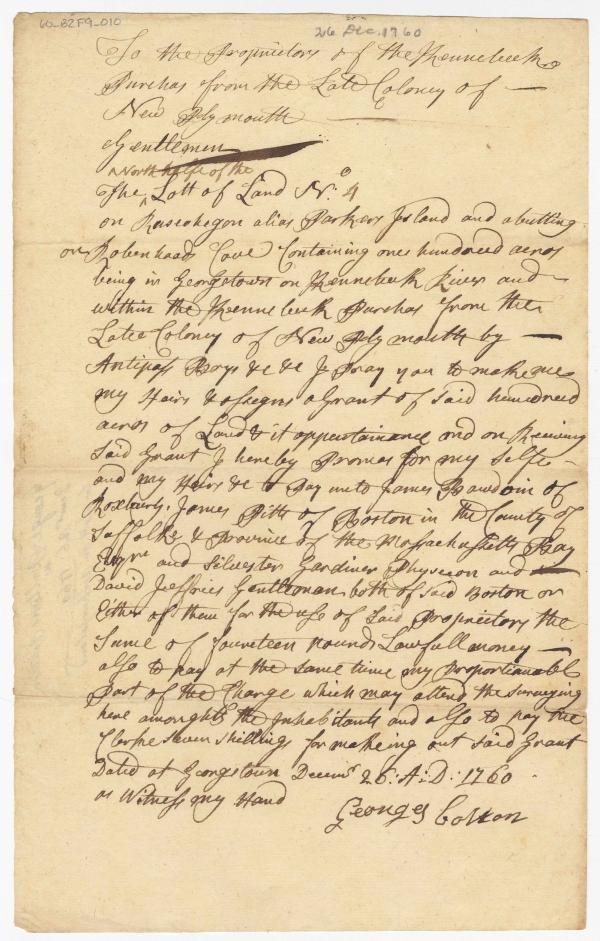 60_B2F9_010
26 Dec. 1760
To the Proprietors of the Kennebeck
Purchas from the Late Colony of —
New Plymouth —
Gentlemen
North halfe of the
The ^ Lott of Land No. 4
on Rascohegon alias Parkers Island and abutting
on Robenhoods Cove Containing one hundred acros
being in Georgstown on Kennebeck River and
within the Kennebeck Purchas from the
Late Colony of New Plymouth by —
Antipass Boys &c &c I Pray you to make me
my Hairs & assegns a Grant of said hundred
acros of Land & it appurtainance and on Receiving
said Grant I hereby Promas for my selfe
and my Hairs &c to Pay unto James Bawdoin of
Roxbury, James Pitts of Boston in the County of
Suffolk & Province of the Massachusetts Bay
Esqrs and Silvester Gardiner Physecon and
David Jeffries Gentleman both of said Boston or
Either of them for the use of said Proprietors the
sume of foureteen pounds Lawfull money —
also to pay at the same time my proportionable
Part of the Charge which may attend the surveying
here amongst the Inhabitants and also to pay the
Clerke seven shillings for makeing out said Grant
Dated at Georgstown Decemr 26: A:D: 1760
as Witness my Hand
George